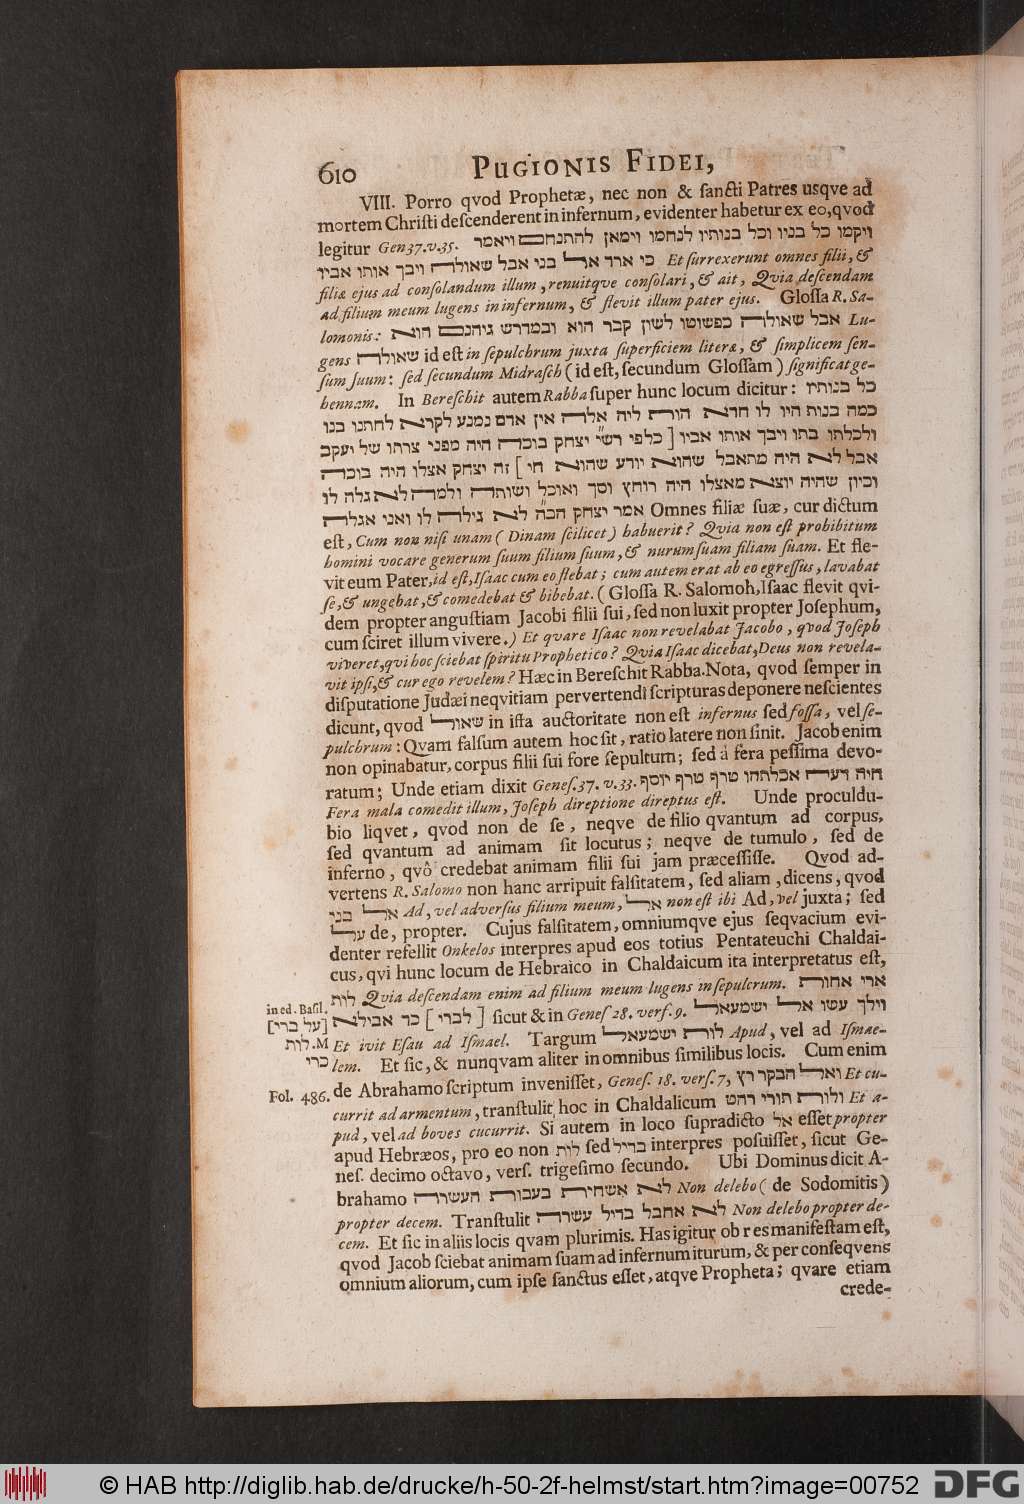 610 PUGIONIS FIDEI,
VIII. Porro qvod Prophetæ, nec non & sancti Patres usqve ad
mortem Christi descenderent in infernum, evidenter habetur ex eo, qvod
legitur Gen 37. v. 35. ויקמו כל בניו וכל בנותיו לנחמו וימאן להתנחם ויאמר
כי ארד אל בני אבל שאולה ויבך אותו אביו Et surrexerunt omnes filii, &
filiæ ejus ad consolandum illum, renuitqve consolari, & ait, Qvia descendam
ad filium meum lugens in infernum, & flevit illum pater ejus. Glossa R. Sa-
lomonis: אבל שאולה כפשוטו לשון קבר הוא ובמדרש גיהנם הוא Lu-
gens שאולה id est in sepulchrum juxta superficiem literæ, & simplicem sen-
sum suum: sed secundum Midrasch (id est, secundum Glossam) significat ge-
hennam. In Bereschit autem Rabba super hunc locum dicitur: כל בנותיו
כמה בנות היו לו חדא הורה ליה אלה אין אדם נמנע לקרא לחתנו בנו
ולכלתו בתו ויבך אותו אביו [ כלפי רש״י יצחק בוכה היה מפני צרתו של יעקב
אבל לא היה מתאבל שהוא יודע שהוא חי ] זה יצחק אצלו היה בוכה
וכיון שהיה יוצא מאצלו היה רוחץ וסך ואוכל ושותה ולמה לא גלה לו
אמר יצחק הב״ה לא גילה לו ואני אגלה Omnes filiæ suæ, cur dictum
est, Cum non nisi unam (Dinam scilicet) habuerit? Qvia non est prohibitum
homini vocare generum suum filium suum, & nurum suam filiam suam. Et fle-
vit eum Pater, id est, Isaac cum eo flebat; cum autem erat ab eo egressus, lavabat
se, & ungebat, & comedebat & bibebat. (Glossa R. Salomoh, Isaac flevit qvi-
dem propter angustiam Jacobi filii sui, sed non luxit propter Josephum,
cum sciret illum vivere.) Et qvare Isaac non revelabat Jacobo, qvod Joseph
viveret, qvi hoc sciebat spiritu Prophetico? Qvia Isaac dicebat, Deus non revela-
vit ipsi, & cur ego revelem? Hæc in Bereschit Rabba. Nota, qvod semper in
disputatione Judæi neqvitiam pervertendi scripturas deponere nescientes
dicunt, qvod שאול in ista auctoritate non est infernus sed fossa, vel se-
pulchrum: Qvam falsum autem hoc sit, ratio latere non sinit. Jacob enim
non opinabatur, corpus filii sui fore sepultum; sed à fera pessima devo-
ratum; Unde etiam dixit Genes. 37. v. 33. חיה רעה אכלתהו טרף טרף יוסף
Fera mala comedit illum, Joseph direptione direptus est. Unde proculdu-
bio liqvet, qvod non de se, neqve de filio qvantum ad corpus,
sed qvantum ad animam sit locutus; neqve de tumulo, sed de
inferno, qvô credebat animam filii sui jam præcessisse. Qvod ad-
vertens R. Salomo non hanc arripuit falsitatem, sed aliam, dicens, qvod
אל בני Ad, vel adversus filium meum, אל non est ibi Ad, vel juxta; sed
על de, propter. Cujus falsitatem, omniumqve ejus seqvacium evi-
denter refellit Onkelos interpres apud eos totius Pentateuchi Chaldai-
cus, qvi hunc locum de Hebraico in Chaldaicum ita interpretatus est,
ארי אחות לות Qvia descendam enim ad filium meum lugens in sepulcrum.
[לברי ] כד אבילא sicut & in Genes 28. vers. 9. וילך עשו אל ישמעאל
Et ivit Esau ad Ismael. Targum לות ישמעאל Apud, vel ad Ismae-
lem. Et sic, & nunqvam aliter in omnibus similibus locis. Cum enim
de Abrahamo scriptum invenisset, Genes. 18. vers. 7, ואל הבקר רץ Et cu-
currit ad armentum, transtulit hoc in Chaldaicum ולות תורי רהט Et a-
pud, vel ad boves cucurrit. Si autem in loco supradicto אל esset propter
apud Hebræos, pro eo non לות sed בדיל interpres posuisset, sicut Ge-
nes. decimo octavo, vers. trigesimo secundo. Ubi Dominus dicit A-
brahamo לא אשחית בעבור העשרה Non delebo (de Sodomitis)
propter decem. Transtulit לא אחבל בדיל עשרה Non delebo propter de-
cem. Et sic in aliis locis qvam plurimis. Has igitur ob res manifestam est,
qvod Jacob sciebat animam suam ad infernum iturum, & per conseqvens
omnium aliorum, cum ipse sanctus esset, atqve Propheta; qvare etiam
crede-
in ed. Basil.
[על ברי]
M. לות
כרי
Fol. 486.
© HAB http://diglib.hab.de/drucke/h-50-2f-helmst/start.htm?image=00752
DFG